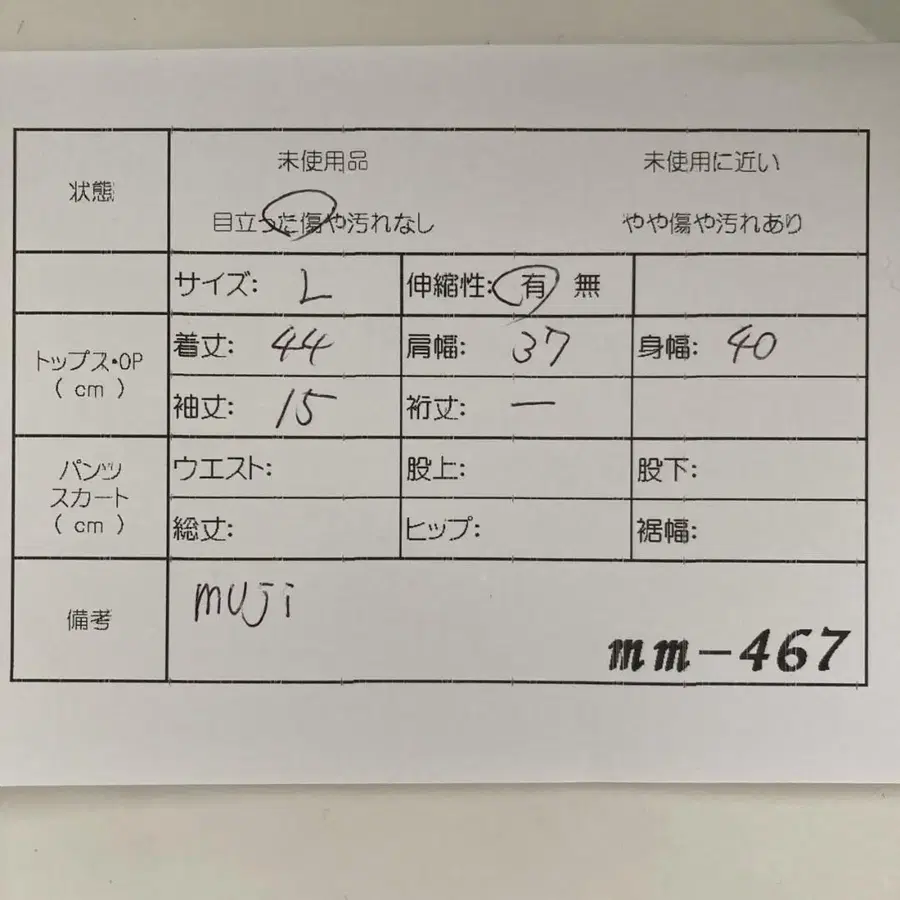 未使用品 未使用に近い
状態
目立った傷や汚れなし やや傷や汚れあり
サイズ: L 伸縮性: 有 無
トップス・OP
( cm )
着丈: 44 肩幅: 37 身幅: 40
袖丈: 15 裄丈: ー
パンツ
スカート
( cm )
ウエスト: 股上: 股下:
総丈: ヒップ: 裾幅:
備考
muji
mm-467